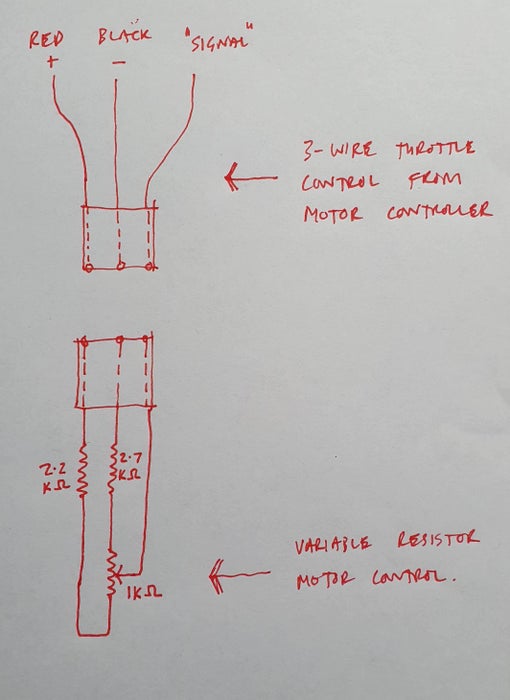 RED BLACK "SIGNAL"
+ −
3-WIRE THROTTLE
CONTROL FROM
MOTOR CONTROLLER
2.2
KΩ
2.7
KΩ
1KΩ
VARIABLE RESISTOR
MOTOR CONTROL.